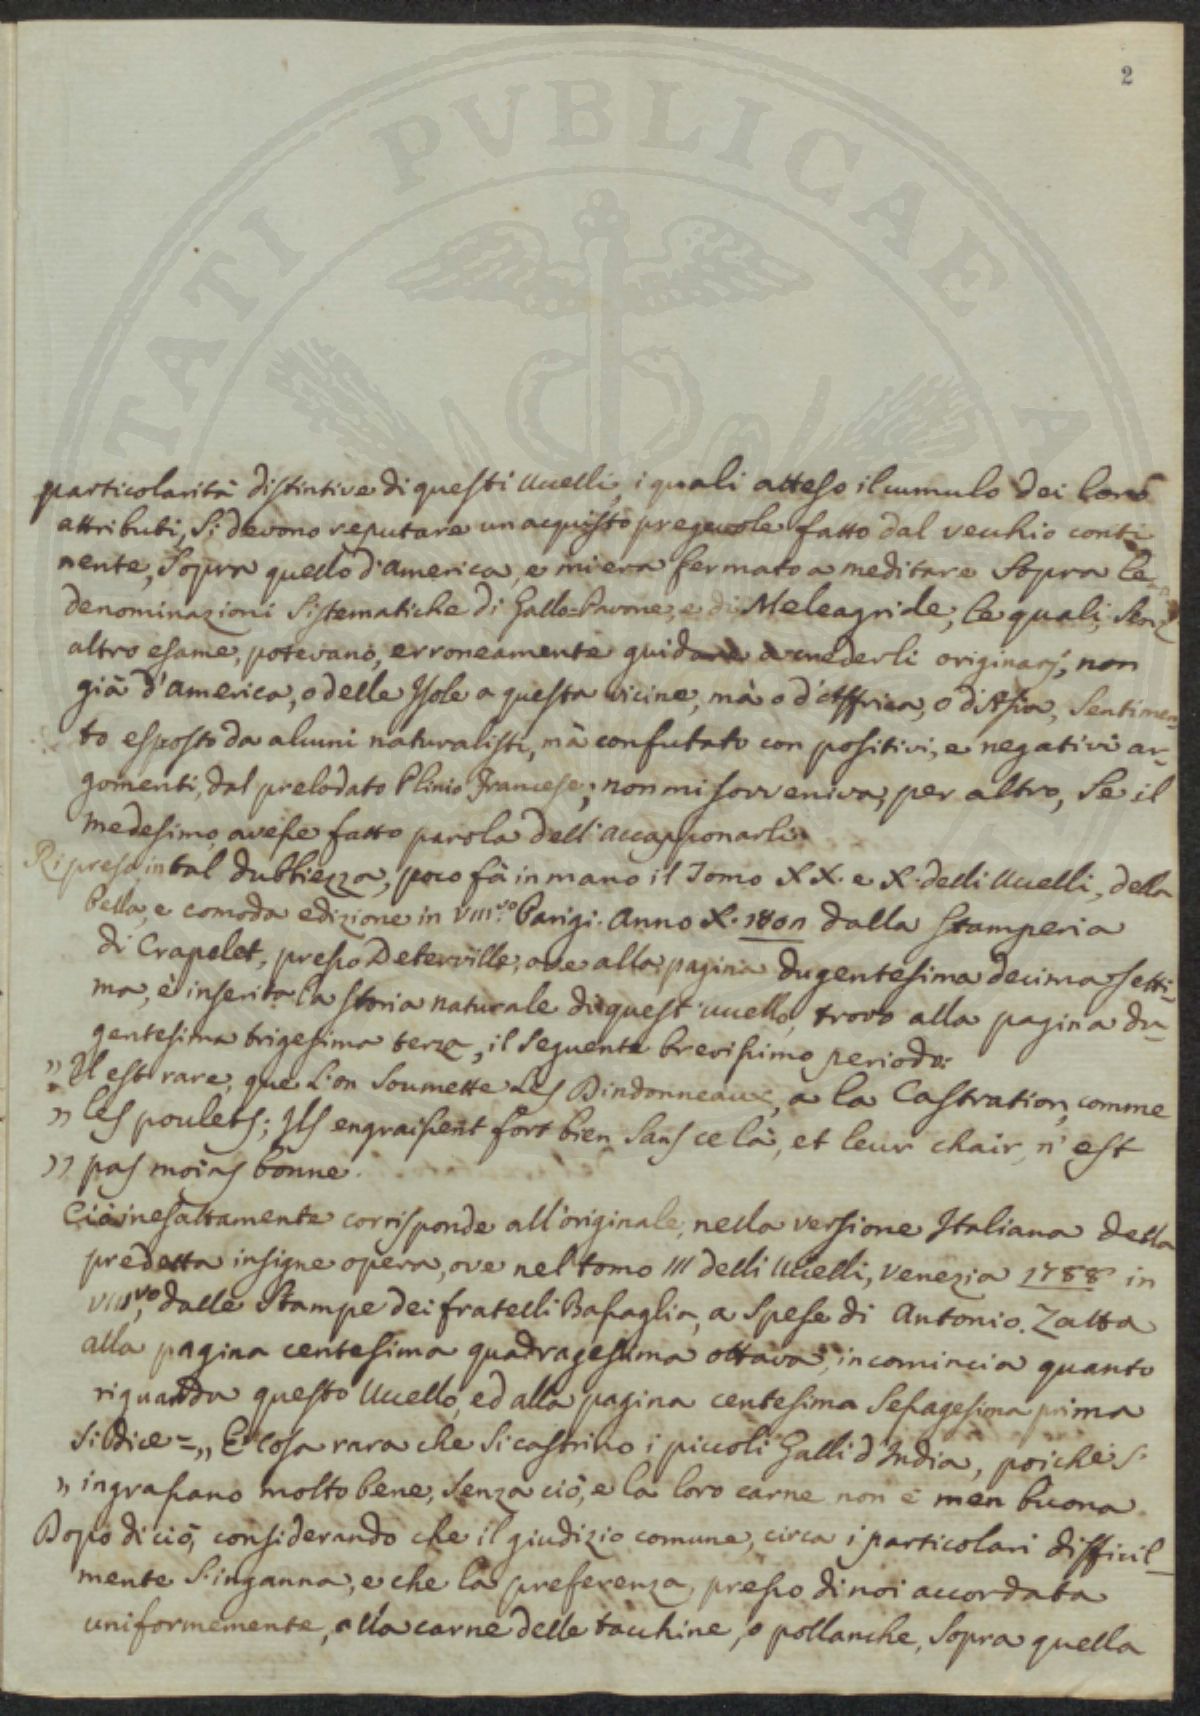 2
TATI PVBLICAE A
particolarità distintive di questi Uccelli, i quali atteso il cumulo dei loro
attributi, si devono reputare un acquisto pregevole fatto dal vecchio conti
nente, sopra quello d'America, e mi era fermato a meditare sopra le
denominazioni sistematiche di Gallo-Pavone, e di Meleagride, le quali, senz
altro esame, potevano, erroneamente guidare a crederli originarj, non
già d'America, o delle Isole a questa vicine, mà o d'Affrica, o d'Asia, sentimen-
to esposto da alcuni naturalisti, mà confutato con positivi, e negativi ar-
gomenti, dal prelodato Plinio Francese; non mi sovveniva, per altro, se il
medesimo avesse fatto parola dell'accapponarli.
Ripresa in tal dubbiezza, poco fà in mano il Tomo XX. e X. delli Uccelli, della
bella, e comoda edizione in VIII.vo Parigi. Anno X. 1801 dalla Stamperia
di Crapelet, presso Deterville, ove alla pagina dugentesima decima setti-
ma, è inserita la storia naturale di quest'uccello, trovo alla pagina du-
gentesima trigesima terza, il seguente brevissimo periodo:
„ Il est rare, que l'on soumette les Dindonneaux, a la Castration, comme
„ les poulets; Ils engraissent fort bien sans ce là, et leur chair, n'est
„ pas moins bonne.
Ciò inesattamente corrisponde all'originale, nella versione Italiana della
predetta insigne opera, ove nel tomo III delli Uccelli, Venezia 1788 in
VIII.vo, dalle Stampe dei fratelli Bassaglia, a spese di Antonio Zatta
alla pagina centesima quadragesima ottava, incomincia quanto
riguarda questo Uccello, ed alla pagina centesima sessagesima prima
si dice = „ E' cosa rara che si castrino i piccoli Galli d'India, poichè s'
„ ingrassano molto bene, senza ciò, e la loro carne non è men buona.
Dopo di ciò, considerando che il giudizio comune, circa i particolari difficil-
mente s'inganna, e che la preferenza, presso di noi accordata
uniformemente, alla carne delle tacchine, o pollanche, sopra quella